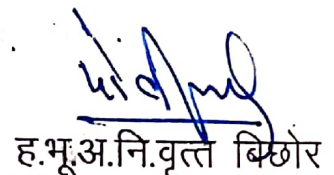 ह.भू.अ.नि.वृत्त बिछोर